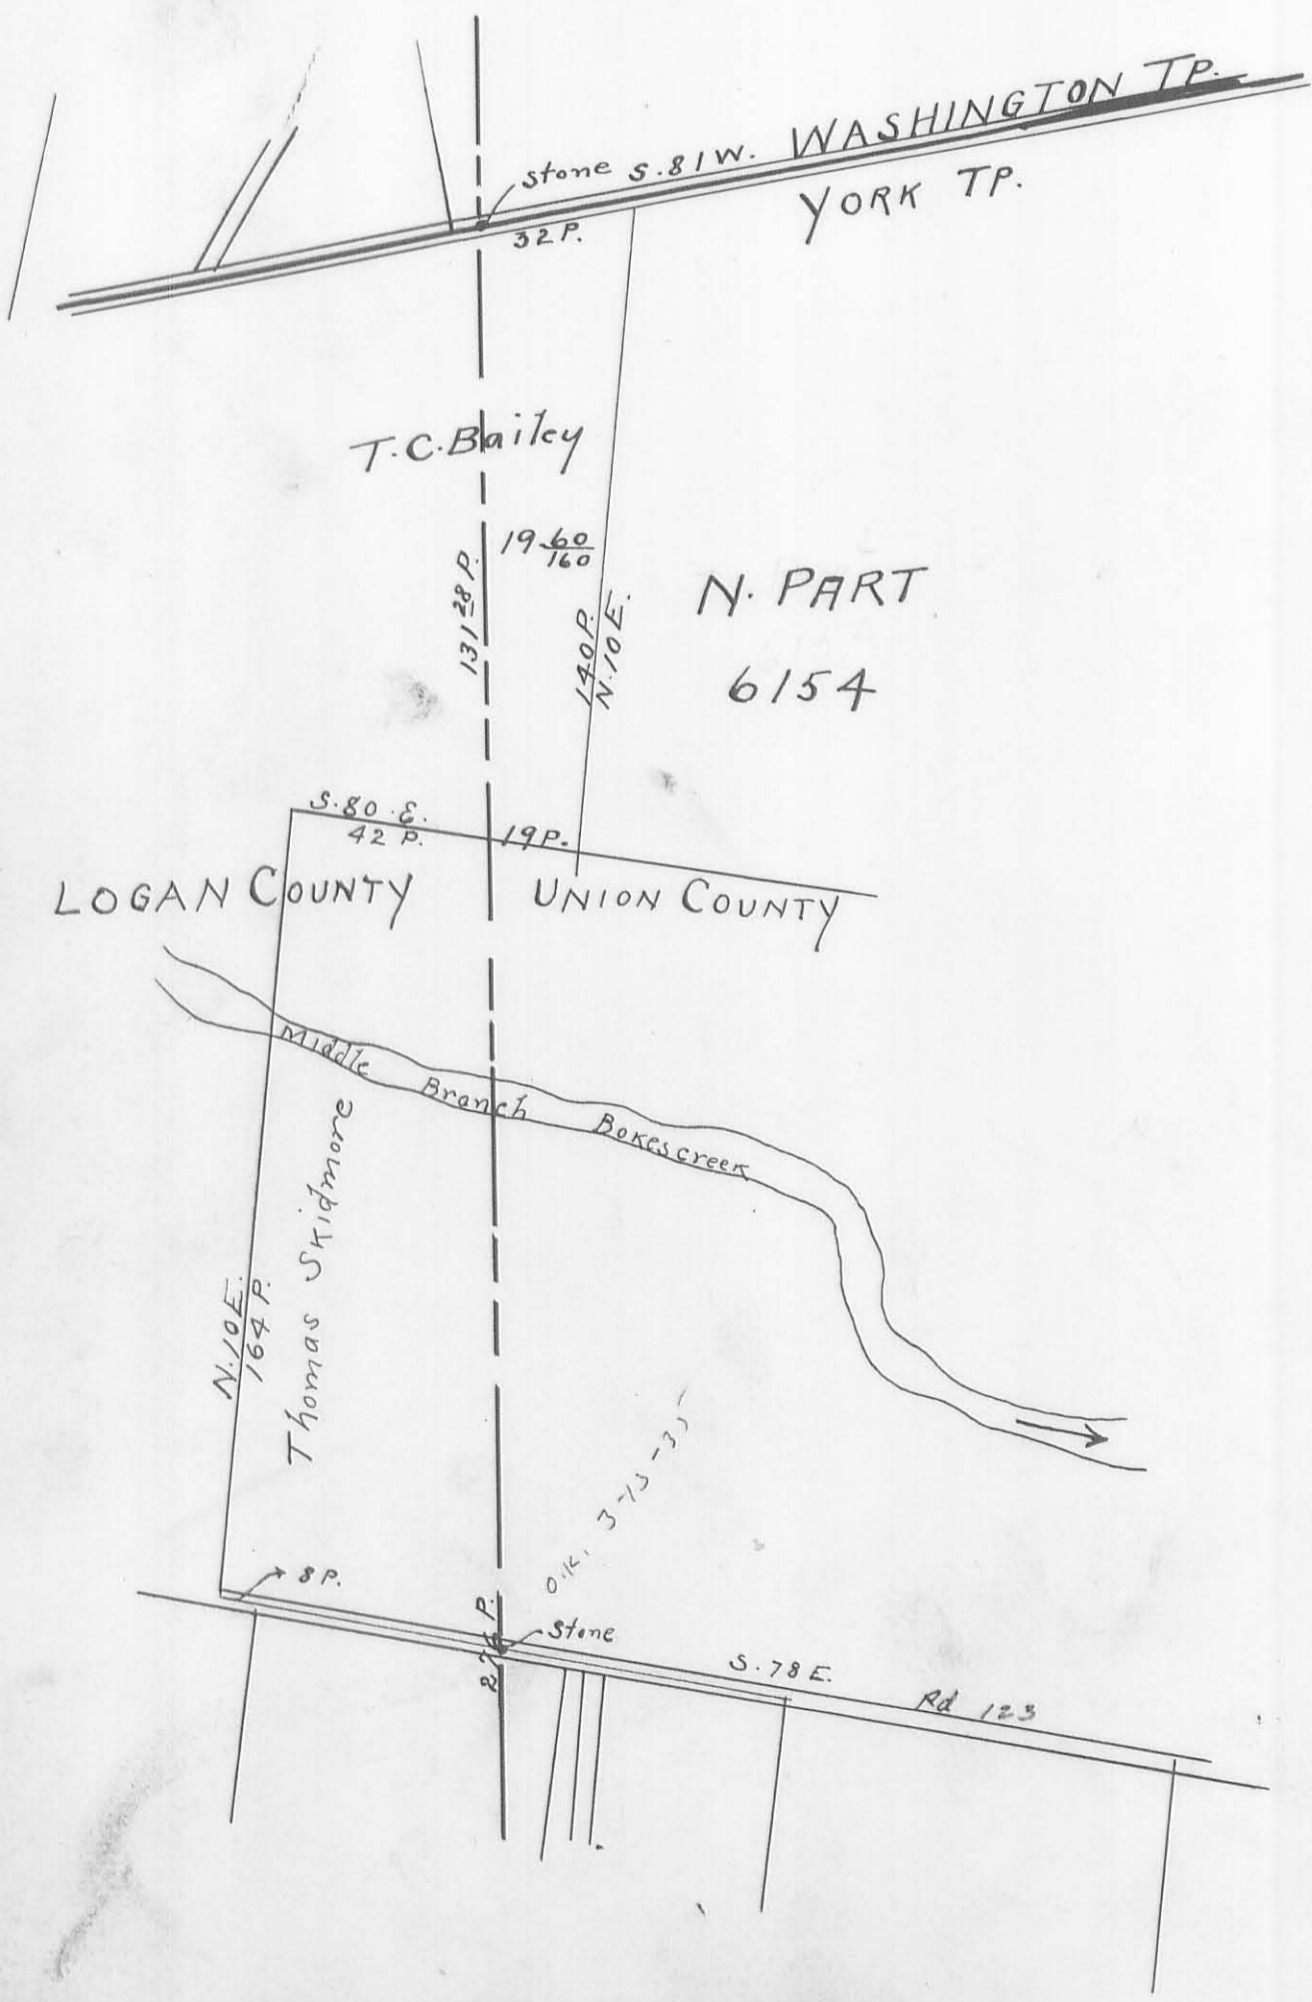 WASHINGTON TP.
stone S.81W.
YORK TP.
32 P.
T.C. Bailey
19 60/160
131 28 P.
140 P.
N.10 E.
N. PART
6154
S.80.E.
42 P.
19 P.
LOGAN COUNTY
UNION COUNTY
Middle Branch Bokescreek
Thomas Skidmore
N.10 E.
164 P.
O.K. 3-13-35
8 P.
P.
Stone
S.78 E.
Rd 123